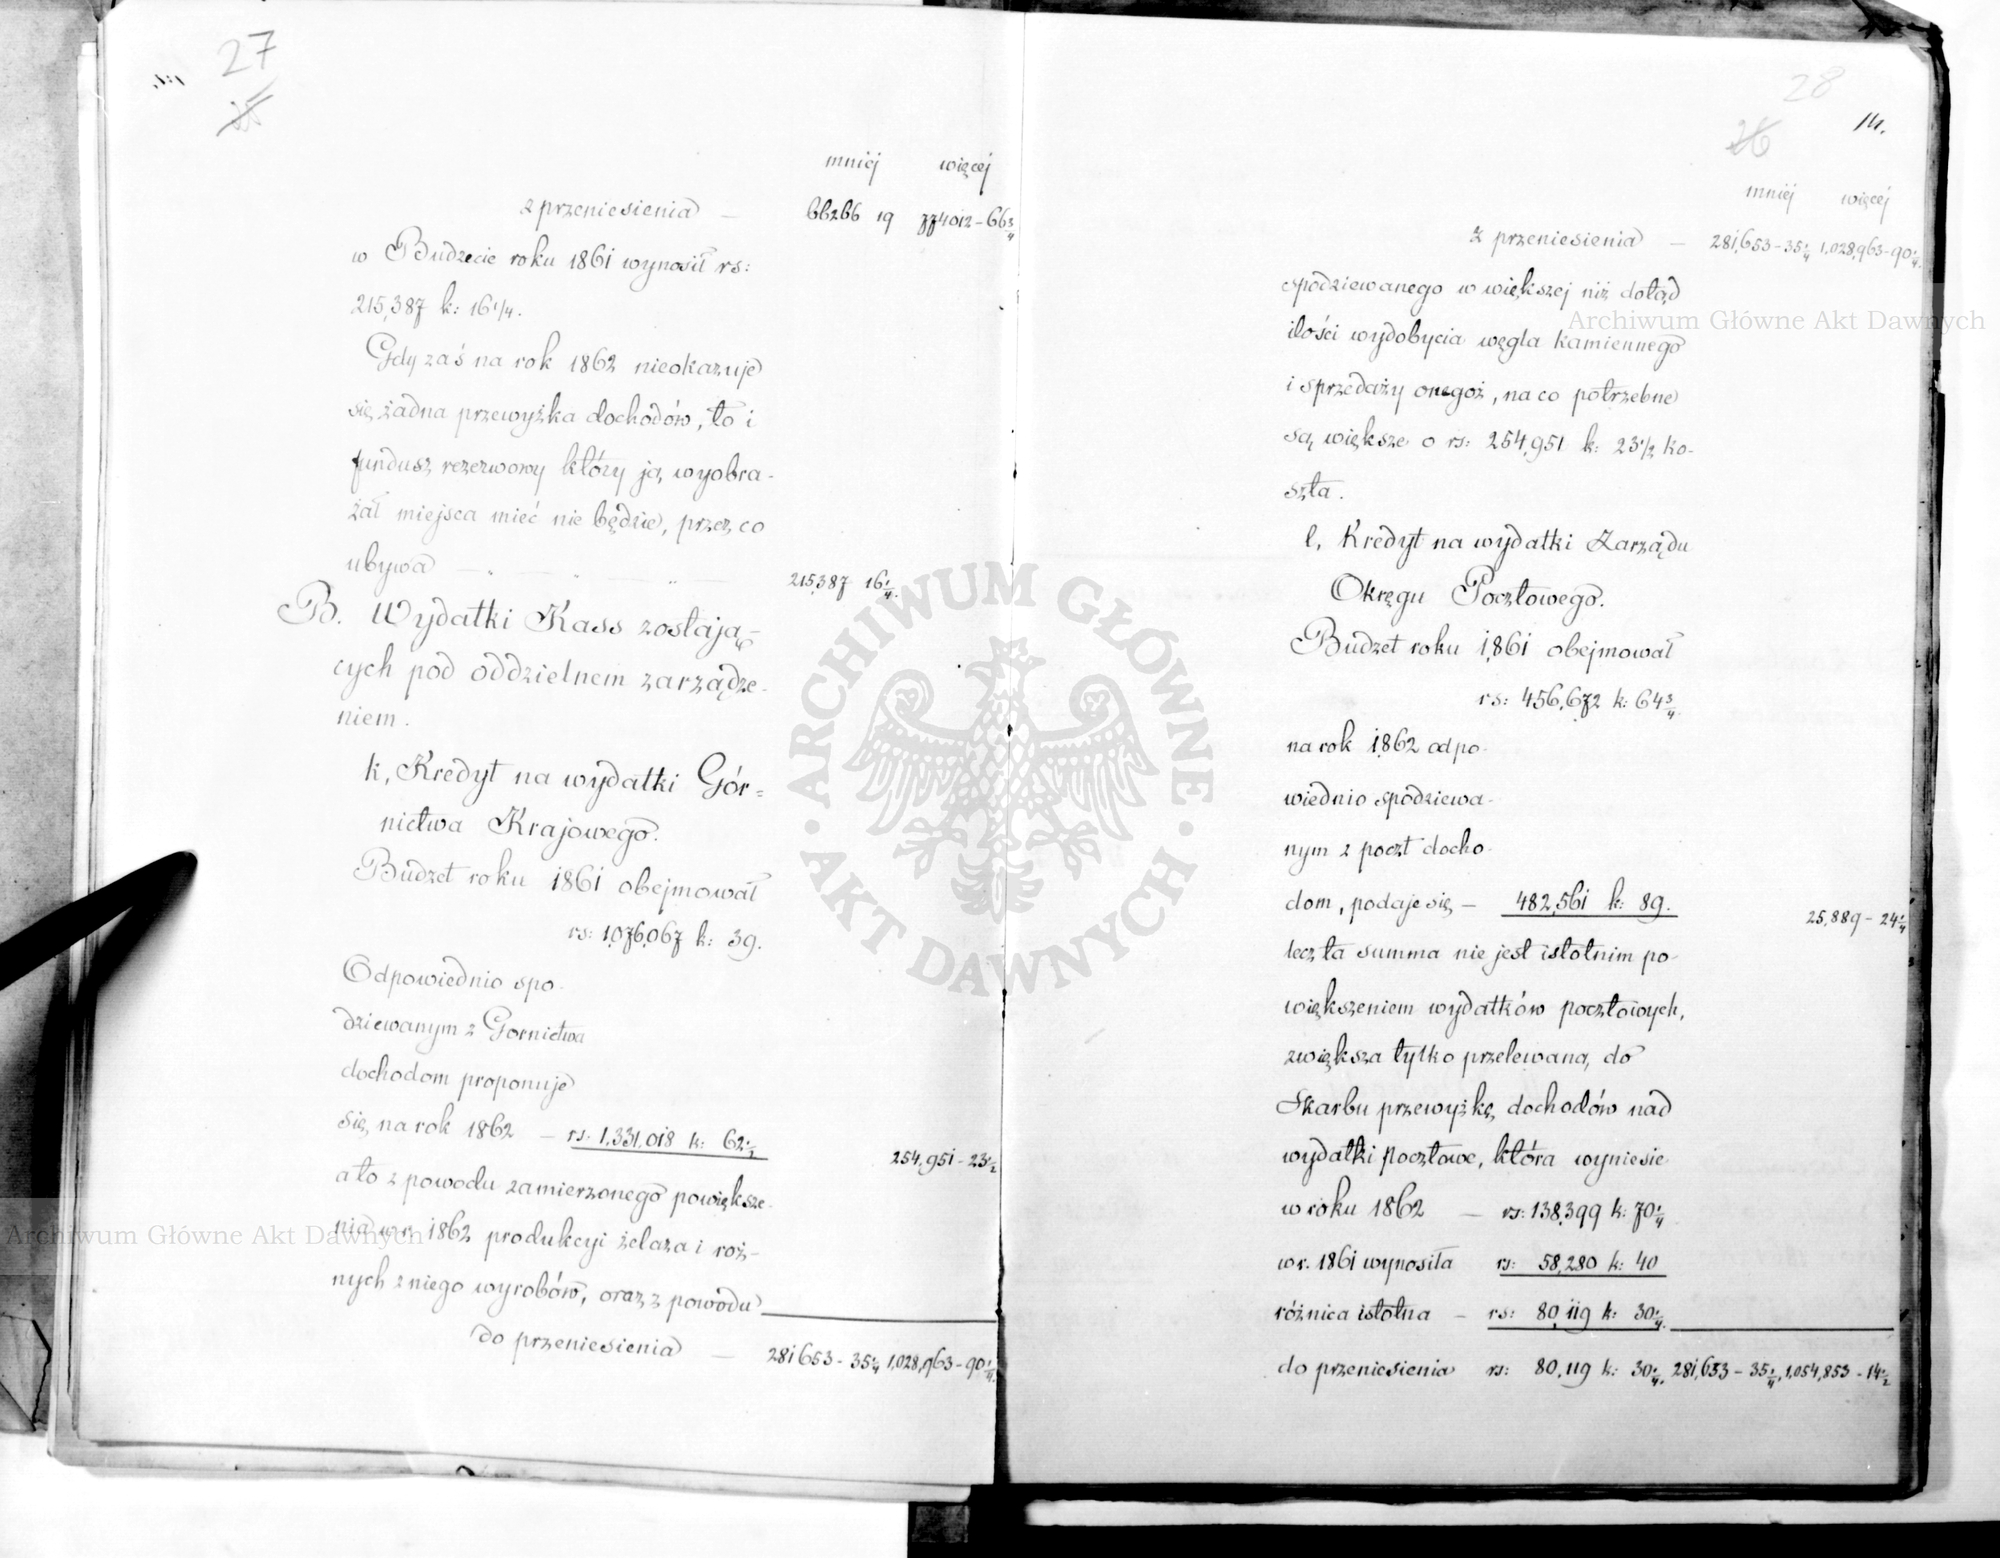 27
25
mniej więcej
z przeniesienia — 66266 19 774012-66 3/4
w Budzecie roku 1861 wynosił rs:
215,387 k: 16 1/4.
Gdy zaś na rok 1862 nieokazuje
się żadna przewyżka dochodów, to i
fundusz rezerwowy który ją wyobra-
żał miejsca mieć nie będzie, przez co
ubywa — " — " — " — 215,387 16 1/4.
B. Wydatki Kass zostają-
cych pod oddzielnem zarządze-
niem.
k, Kredyt na wydatki Gór=
nictwa Krajowego.
Budzet roku 1861 obejmował
rs: 1,076,067 k: 39.
Odpowiednio spo-
dziewanym z Gornictwa
dochodom proponuje
się na rok 1862 — rs: 1,331,018 k: 62 1/2 254,951-23 1/2
a to z powodu zamierzonego powiększe-
nia w r. 1862 produkcyi żelaza i roż-
nych z niego wyrobów, oraz z powodu
do przeniesienia — 281653-35 1/4 1,028,963-90 1/4.
28
26
14.
mniej więcej
z przeniesienia — 281,653-35 1/4 1,028,963-90 1/4.
spodziewanego w większej niż dotąd
ilości wydobycia węgla kamiennego
i sprzedaży onegoż, na co potrzebne
są większe o rs: 254,951 k: 23 1/2 ko-
szta.
l, Kredyt na wydatki Zarządu
Okręgu Pocztowego.
Budzet roku 1861 obejmował
rs: 456,672 k: 64 3/4.
na rok 1862 odpo-
wiednio spodziewa-
nym z poczt docho-
dom, podaje się — 482,561 k: 89. 25,889-24 1/4
lecz ta summa nie jest istotnim po-
większeniem wydatków pocztowych,
zwiększa tylko przelewaną do
Skarbu przewyżkę dochodów nad
wydatki pocztowe, która wyniesie
w roku 1862 — rs: 138,399 k: 70 1/4
w r. 1861 wynosiła rs: 58,280 k: 40
różnica istotna — rs: 80,119 k: 30 1/4.
do przeniesienia rs: 80,119 k: 30 1/4. 281,653-35 1/4, 1,054,853-14 1/2
ARCHIWUM GŁÓWNE · AKT DAWNYCH ·
Archiwum Główne Akt Dawnych
Archiwum Główne Akt Dawnych